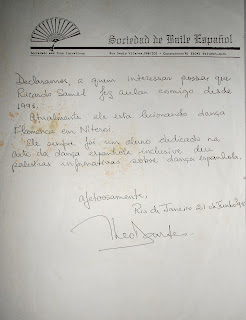 Sociedad de Baile Español
Declaramos a quem interessar possa que
Ricardo Samel fez aulas comigo desde
Atualmente ele esta lecionando dança
Flamenca em Niteroi
Ele sempre foi um aluno dedicado na
arte da dança espanhola inclusive deu
palestras informativas sobre dança espanhola.
afetuosamente,
Rio de Janeiro 21 de Junho